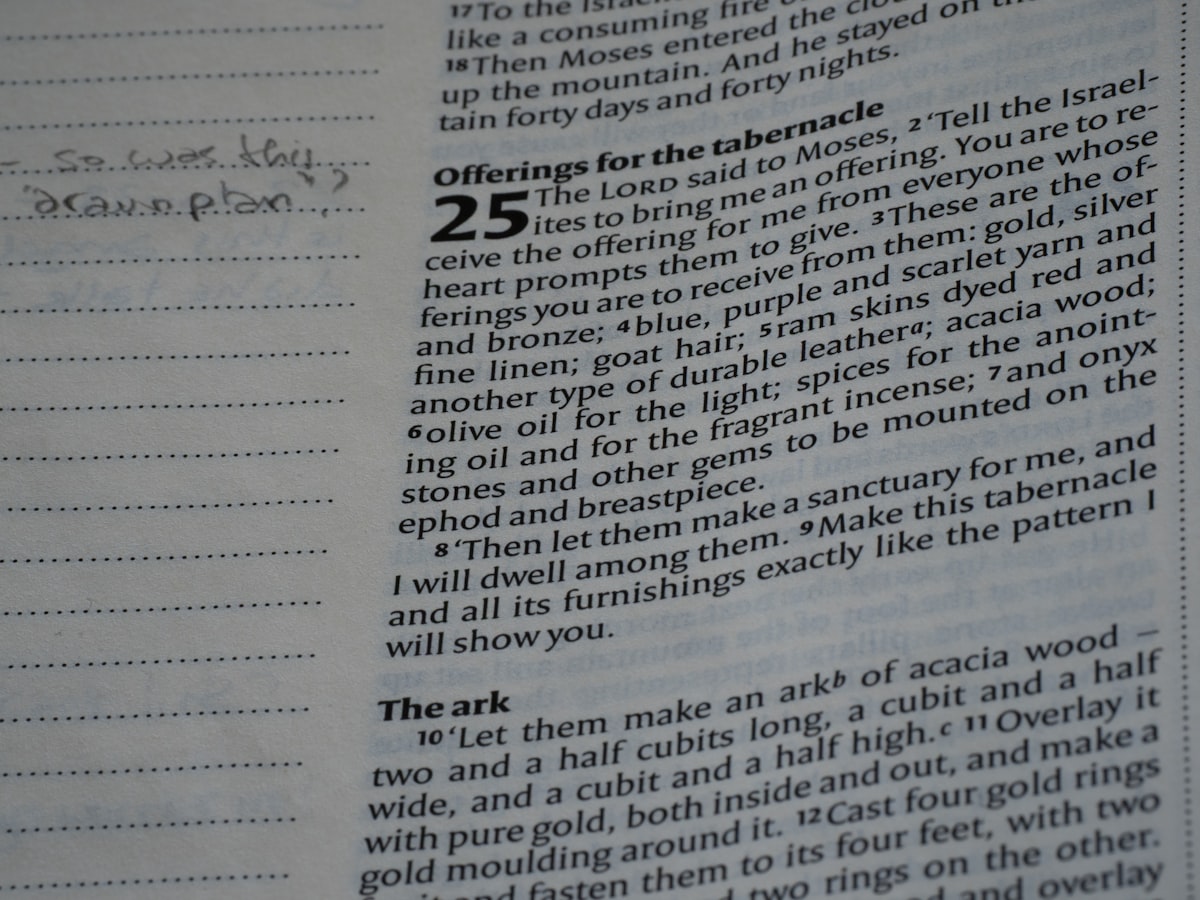 - so was this
plan"?
17 To the Israel
like a consuming fire
18 Then Moses entered the
up the mountain. And he stayed on
tain forty days and forty nights.
Offerings for the tabernacle
25 The LORD said to Moses, 2 ‘Tell the Israel-
ites to bring me an offering. You are to re-
ceive the offering for me from everyone whose
heart prompts them to give. 3 These are the of-
ferings you are to receive from them: gold, silver
and bronze; 4 blue, purple and scarlet yarn and
fine linen; goat hair; 5 ram skins dyed red and
another type of durable leathera; acacia wood;
6 olive oil for the light; spices for the anoint-
ing oil and for the fragrant incense; 7 and onyx
stones and other gems to be mounted on the
ephod and breastpiece.
8 ‘Then let them make a sanctuary for me, and
I will dwell among them. 9 Make this tabernacle
and all its furnishings exactly like the pattern I
will show you.
The ark
10 ‘Let them make an arkb of acacia wood –
two and a half cubits long, a cubit and a half
wide, and a cubit and a half high.c 11 Overlay it
with pure gold, both inside and out, and make a
gold moulding around it. 12 Cast four gold rings
and fasten them to its four feet, with two
two rings on the other.
and overlay